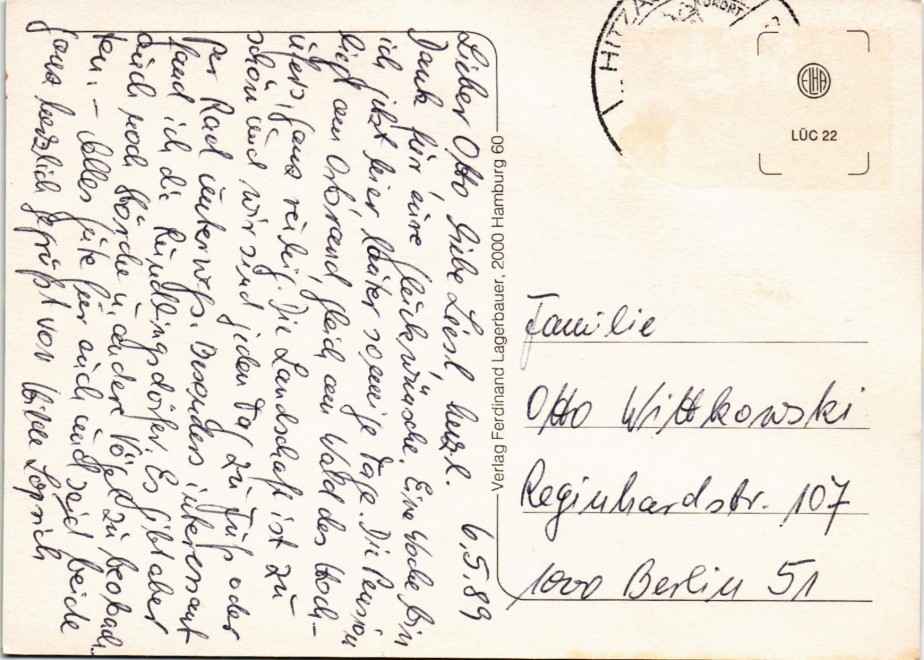 6.5.89
Lieber Otto liebe Liesl, herzl.
Dank für eure Glückwünsche. Eine Woche bin
ich jetzt hier lauter sonnige Tage. Die Pension
liegt am Ortsrand gleich am Wald des Hoch-
ufers, ganz ruhig. Die Landschaft ist zu
schön und wir sind jeden Tag zu Fuß oder
per Rad unterwegs. Besonders interessant
fand ich die Rundlingsdörfer. Es gibt aber
auch noch Störche u. andere Vögel zu beobach-
ten. – Alles Gute für euch und seid beide
ganz herzlich gegrüßt von
Verlag Ferdinand Lagerbauer, 2000 Hamburg 60
HITZA
KURORT
EIHA
LÜC 22
Familie
Otto Wittkowski
Reginhardstr. 107
1000 Berlin 51